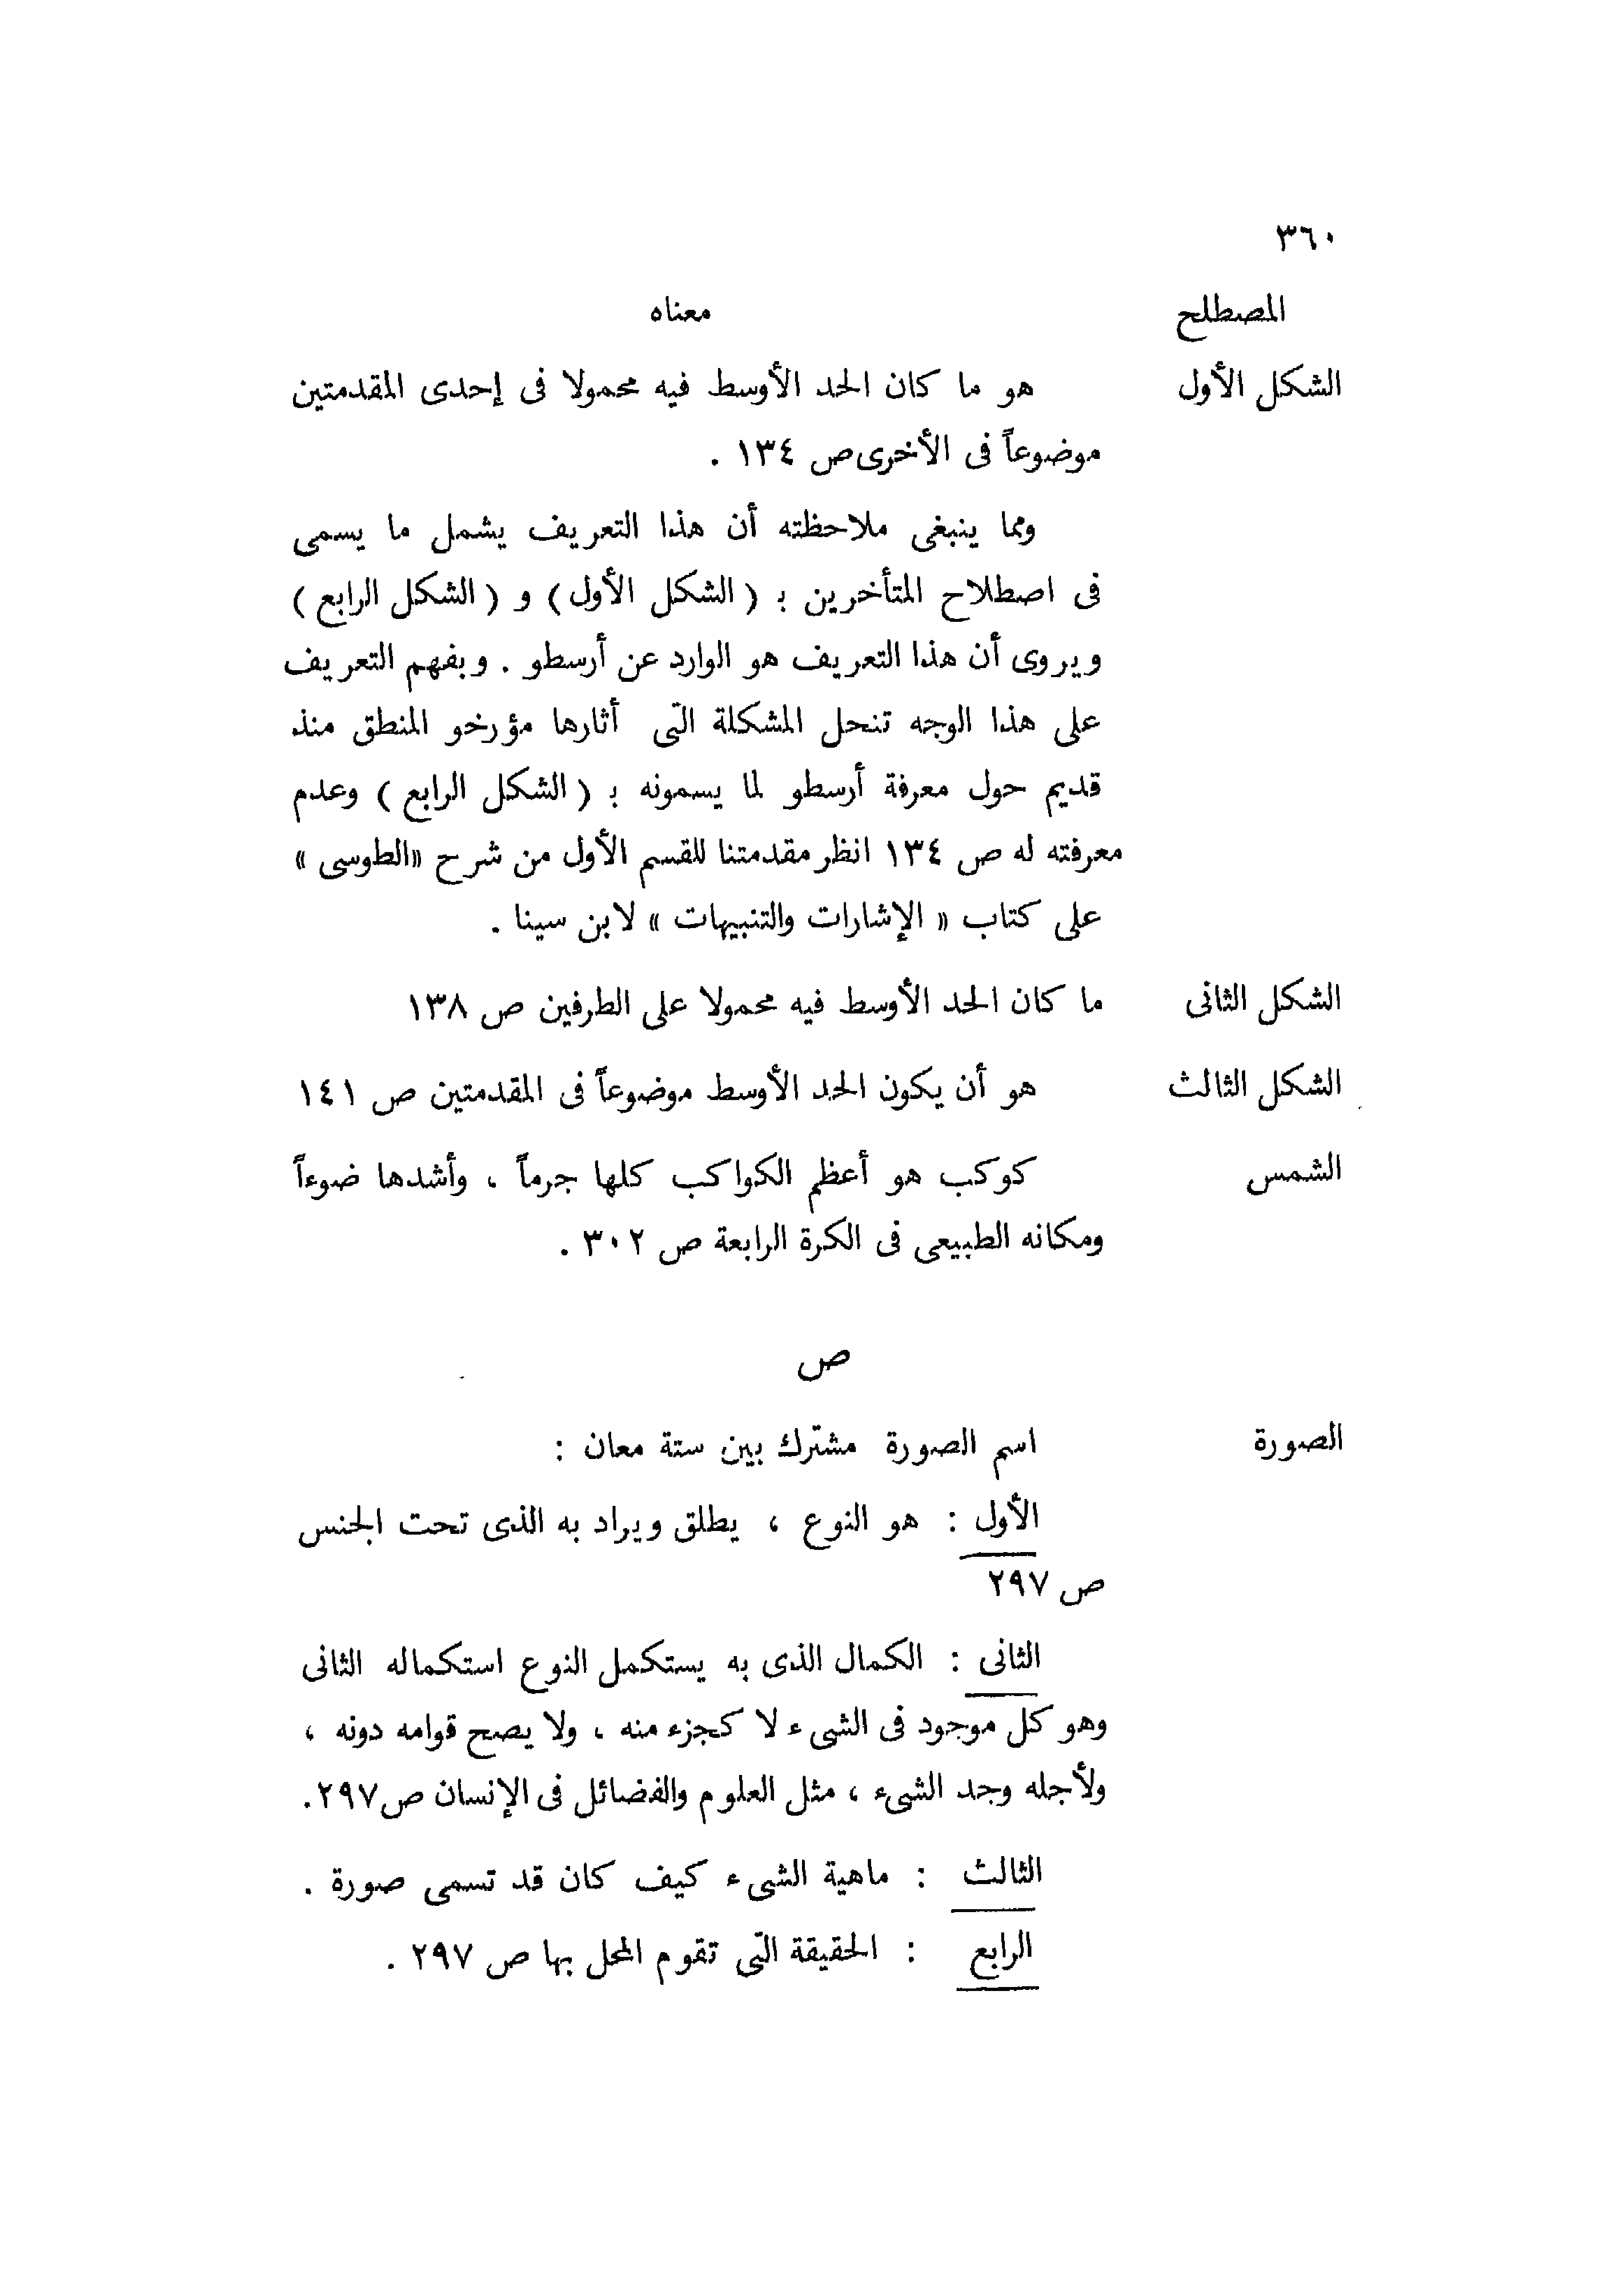 ٣٦٠
المصطلح معناه
الشكل الأول هو ما كان الحد الأوسط فيه محمولا فى إحدى المقدمتين
موضوعاً فى الأخرى ص ١٣٤ .
ومما ينبغى ملاحظته أن هذا التعريف يشمل ما يسمى
فى اصطلاح المتأخرين بـ ( الشكل الأول ) و ( الشكل الرابع )
ويروى أن هذا التعريف هو الوارد عن أرسطو . وبفهم التعريف
على هذا الوجه تنحل المشكلة التى أثارها مؤرخو المنطق منذ
قديم حول معرفة أرسطو لما يسمونه بـ ( الشكل الرابع ) وعدم
معرفته له ص ١٣٤ انظر مقدمتنا للقسم الأول من شرح «الطوسى »
على كتاب « الإشارات والتنبيهات » لابن سينا .
الشكل الثانى ما كان الحد الأوسط فيه محمولا على الطرفين ص ١٣٨
الشكل الثالث هو أن يكون الحد الأوسط موضوعاً فى المقدمتين ص ١٤١
الشمس كوكب هو أعظم الكواكب كلها جرماً ، وأشدها ضوءاً
ومكانه الطبيعى فى الكرة الرابعة ص ٣٠٢ .
ص
الصورة اسم الصورة مشترك بين ستة معان :
الأول : هو النوع ، يطلق ويراد به الذى تحت الجنس
ص ٢٩٧
الثانى : الكمال الذى به يستكمل النوع استكماله الثانى
وهو كل موجود فى الشىء لا كجزء منه ، ولا يصح قوامه دونه ،
ولأجله وجد الشىء ، مثل العلوم والفضائل فى الإنسان ص ٢٩٧.
الثالث : ماهية الشىء كيف كان قد تسمى صورة .
الرابع : الحقيقة التى تقوم المحل بها ص ٢٩٧ .